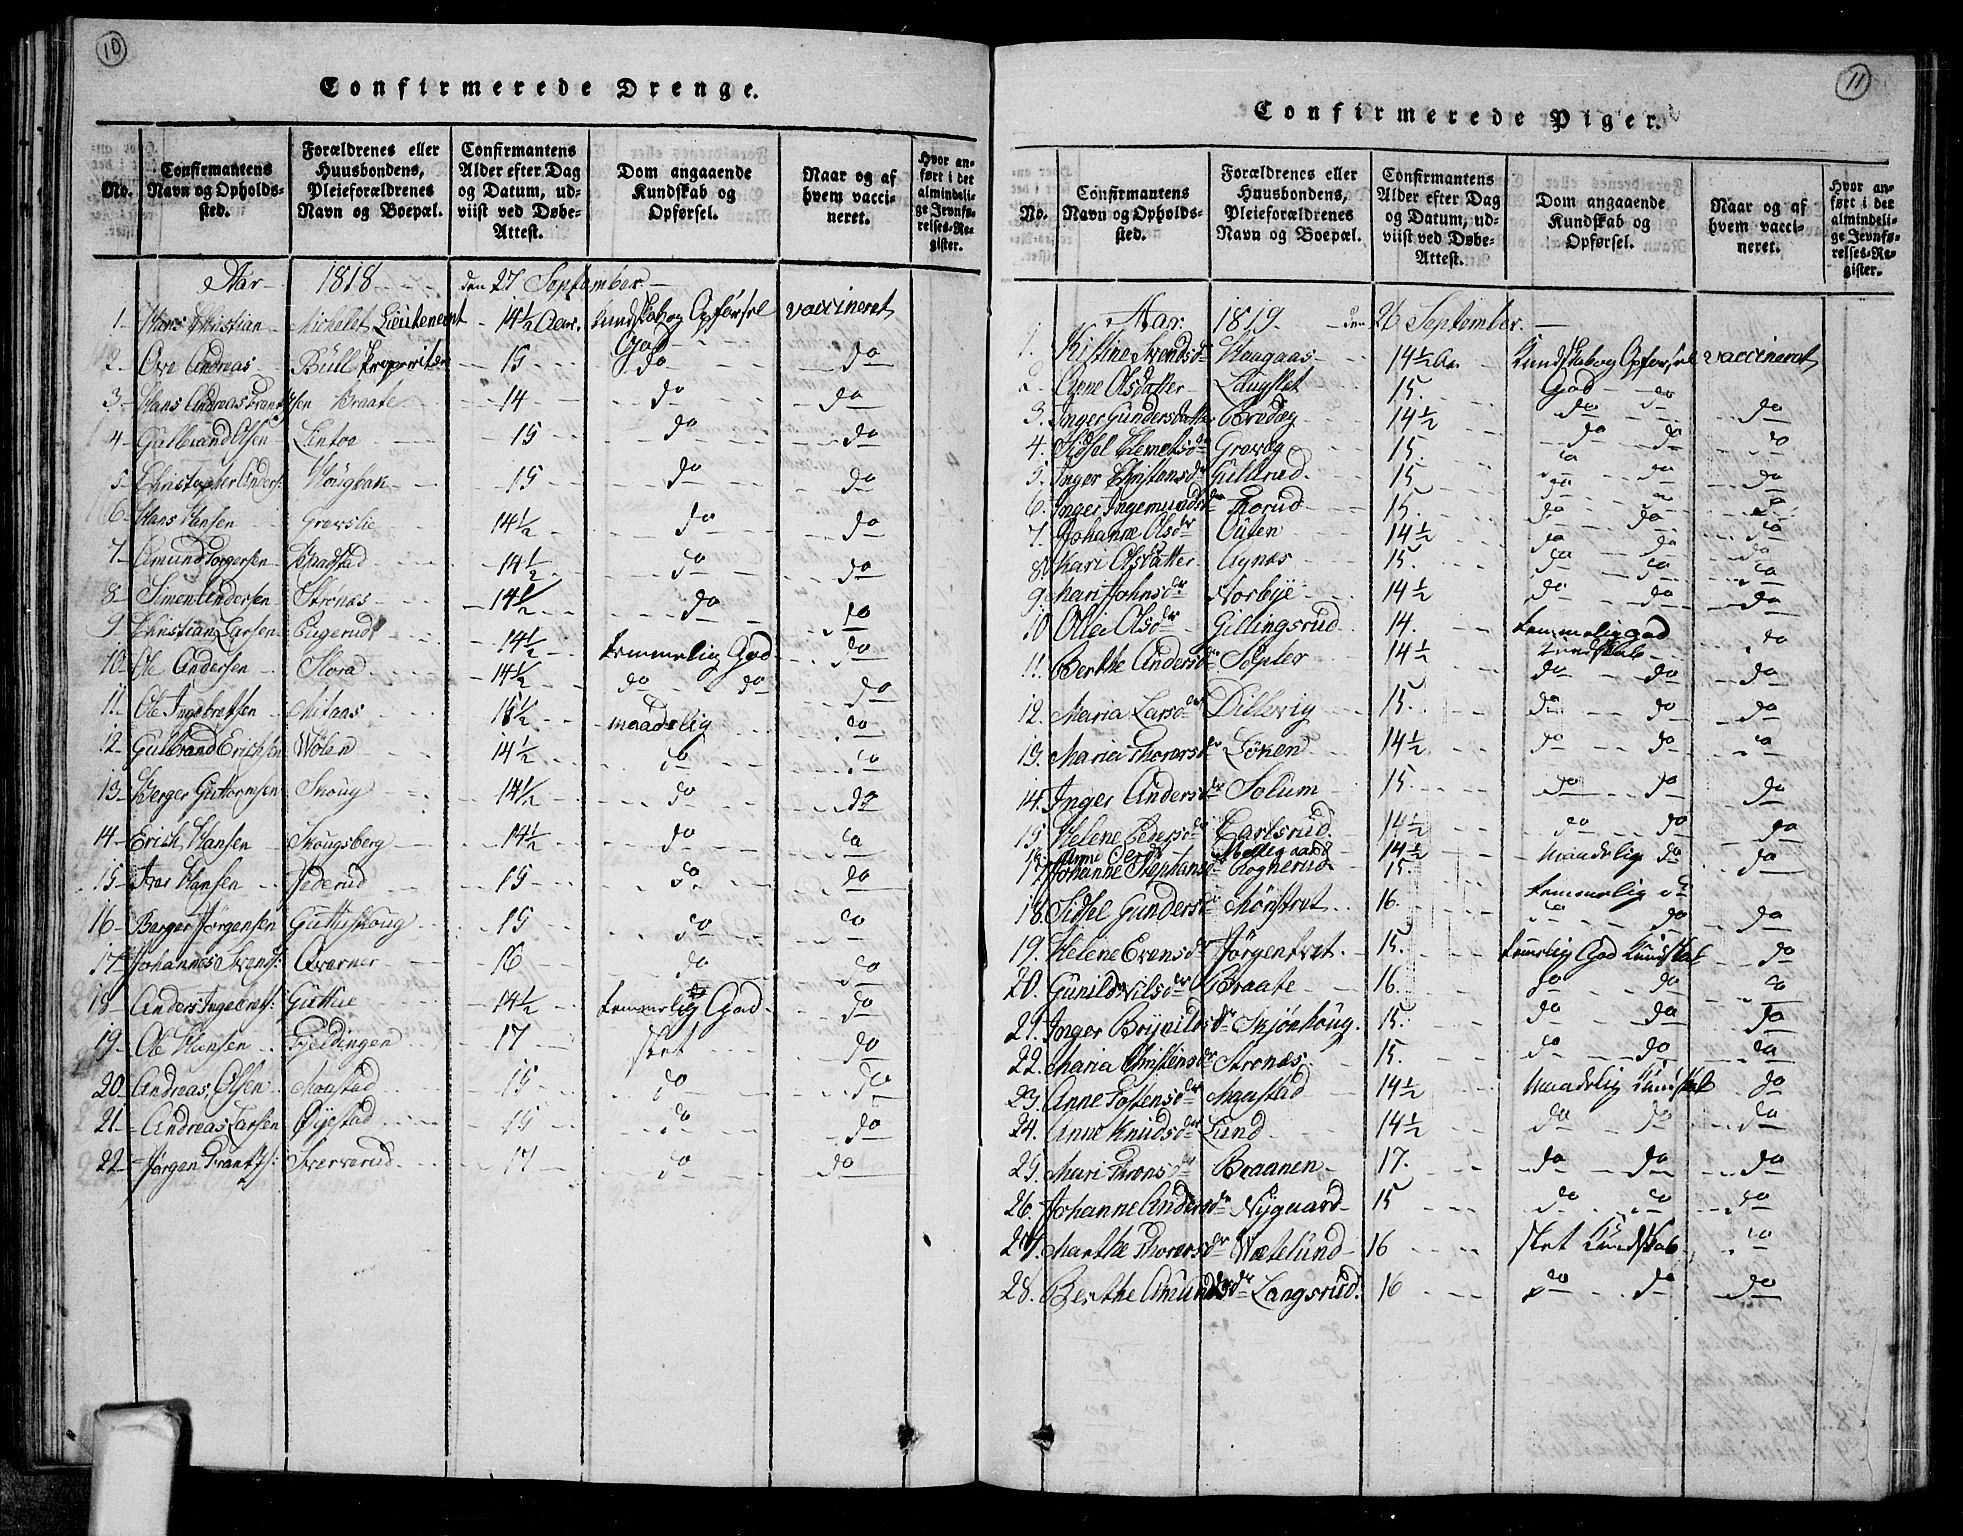 10
Confirmerede Drenge.
No. | Confirmantens Navn og Opholds-sted. | Forældrenes eller Huusbondens, Pleieforældrenes Navn og Boepæl. | Confirmantens Alder efter Dag og Datum, ud-viist ved Døbe-Attest. | Dom angaaende Kundskab og Opførsel. | Naar og af hvem vacci-neret. | Hvor an-ført i det almindeli-ge Jevnfø-relses-Re-gister.
Aar 1818 den 27 September
1 Hans Christian Michelet Lieutenant 14½ Aar. Kundskab og Opførsel God vaccineret
2 Ove Andreas Büll 15 do do
3 Hans Andreas Frantzsen Braate 14 do do
4 Gulbrand Olsen Lintoe 15 do do
5 Christopher Anders: Høugbak 15 do do
6 Hans Hansen Grevslie 14½ do do
7 Amund Torgersen 14½ do do
8 Simen Andersen Strønæs 14½ do do
9 Christian Larsen 14½ temmelig God do
10 Ole Andersen Flora 14½ do do do
11 Ole Ingebretsen 15½ maadelig do
12 Gulbrand Erichsen Wølen 14½ do do
13 Berger Guttormsen Skoug 14½ do do
14 Erich Hansen Skougsberg 14½ do do
15 Iver Hansen Jøderud 15 do do
16 Berger Jörgensen Guttuskoug 15 do do
17 Johannes Svends: Qverner 16 do do
18 Anders Ingebrets: Guttue 14½ temmelig God do
19 Ole Hansen Fjeldingen 17 slet do
20 Andreas Olsen Mostad 15 do do
21 Andreas Larsen Øyestad 15 do do
22 Jörgen Frantz: Sververud 17 do do
11
Confirmerede Piger.
No. | Confirmantens Navn og Opholds-sted. | Forældrenes eller Huusbondens, Pleieforældrenes Navn og Boepæl. | Confirmantens Alder efter Dag og Datum, ud-viist ved Døbe-Attest. | Dom angaaende Kundskab og Opførsel. | Naar og af hvem vacci-neret. | Hvor an-ført i det almindeli-ge Jevnfø-relses-Re-gister.
Aar 1819. den 26 September.
1. Kistine Svendsdr Haagaas 14½ Aar Kundskab og Opførsel vaccineret
2. Anne Olsdatter Laugslet 15. God do
3. Inger Gundersdatter Bredeg 14½ do do do
4. Sidsel Clemetsdr Greveg 15. do do do
5. Inger Christensdr Gulterud 15 do do do
6. Inger Ingemundsdr Thorud 15. do do do
7. Johanne Olsdr Outen 14½ do do do
8 Kari Olsdatter Aynæs 15. do do do
9 Mari Johnsdr Norbye 14½ do do do
10 Ollia Olsdr Gillingsrud 14. temmelig god Kundskab do
11. Berthe Andersdr Søpler 14½ do do do
12. Maria Larsdr Dillevig 15. do do do
13. Maria Thorersdr Løken 14½ do do do
14. Inger Andersdr Solum 15. do do do
15 Helene Pedersdr Carlsrud. 14½ do do do
16 Anne 14½ Maadelig do do
17 Johanne Stephansdr Rognerud 15.
18 Sidsel Gundersdr Mønstret 16. temmelig do do do do
19. Helene Evensdr Jørgentvet 15. temlig God Kundskab do
20. Gunild Nilsdr Braate 16. do do do
21. Inger Brynildsdr Skjønhoug. 15. do do do
22. Maria Christensdr Strønæs. 15. do do do
23. Anne Tostensdr Mostad 14½ Maadelig Kundskab do
24. Anne Knudsdr Lund 14½ do do do
25. Mari Thronsdr Braanen 17. do do do
26. Johanne Andersdr Nyguard 15 do do do
27. Marthe Thorersdr Wætelund 16 slet Kundskab do
28. Berthe Amundsdr Langsrud. 16 do do do